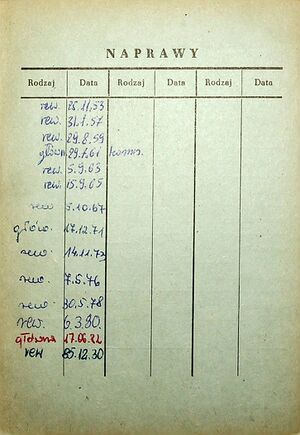 NAPRAWY
Rodzaj Data Rodzaj Data Rodzaj Data
rew. 26.11.53
rew. 31.1.57
rew. 29.8.59
główn 29.7.61
rew. 5.9.63
rew. 15.9.65
rew 5.10.67
głów. 17.12.71
rew. 14.11.73
rew. 7.5.76
rew. 30.5.78
rew. 6.3.80.
główna 17.06.82
rew 85.12.30